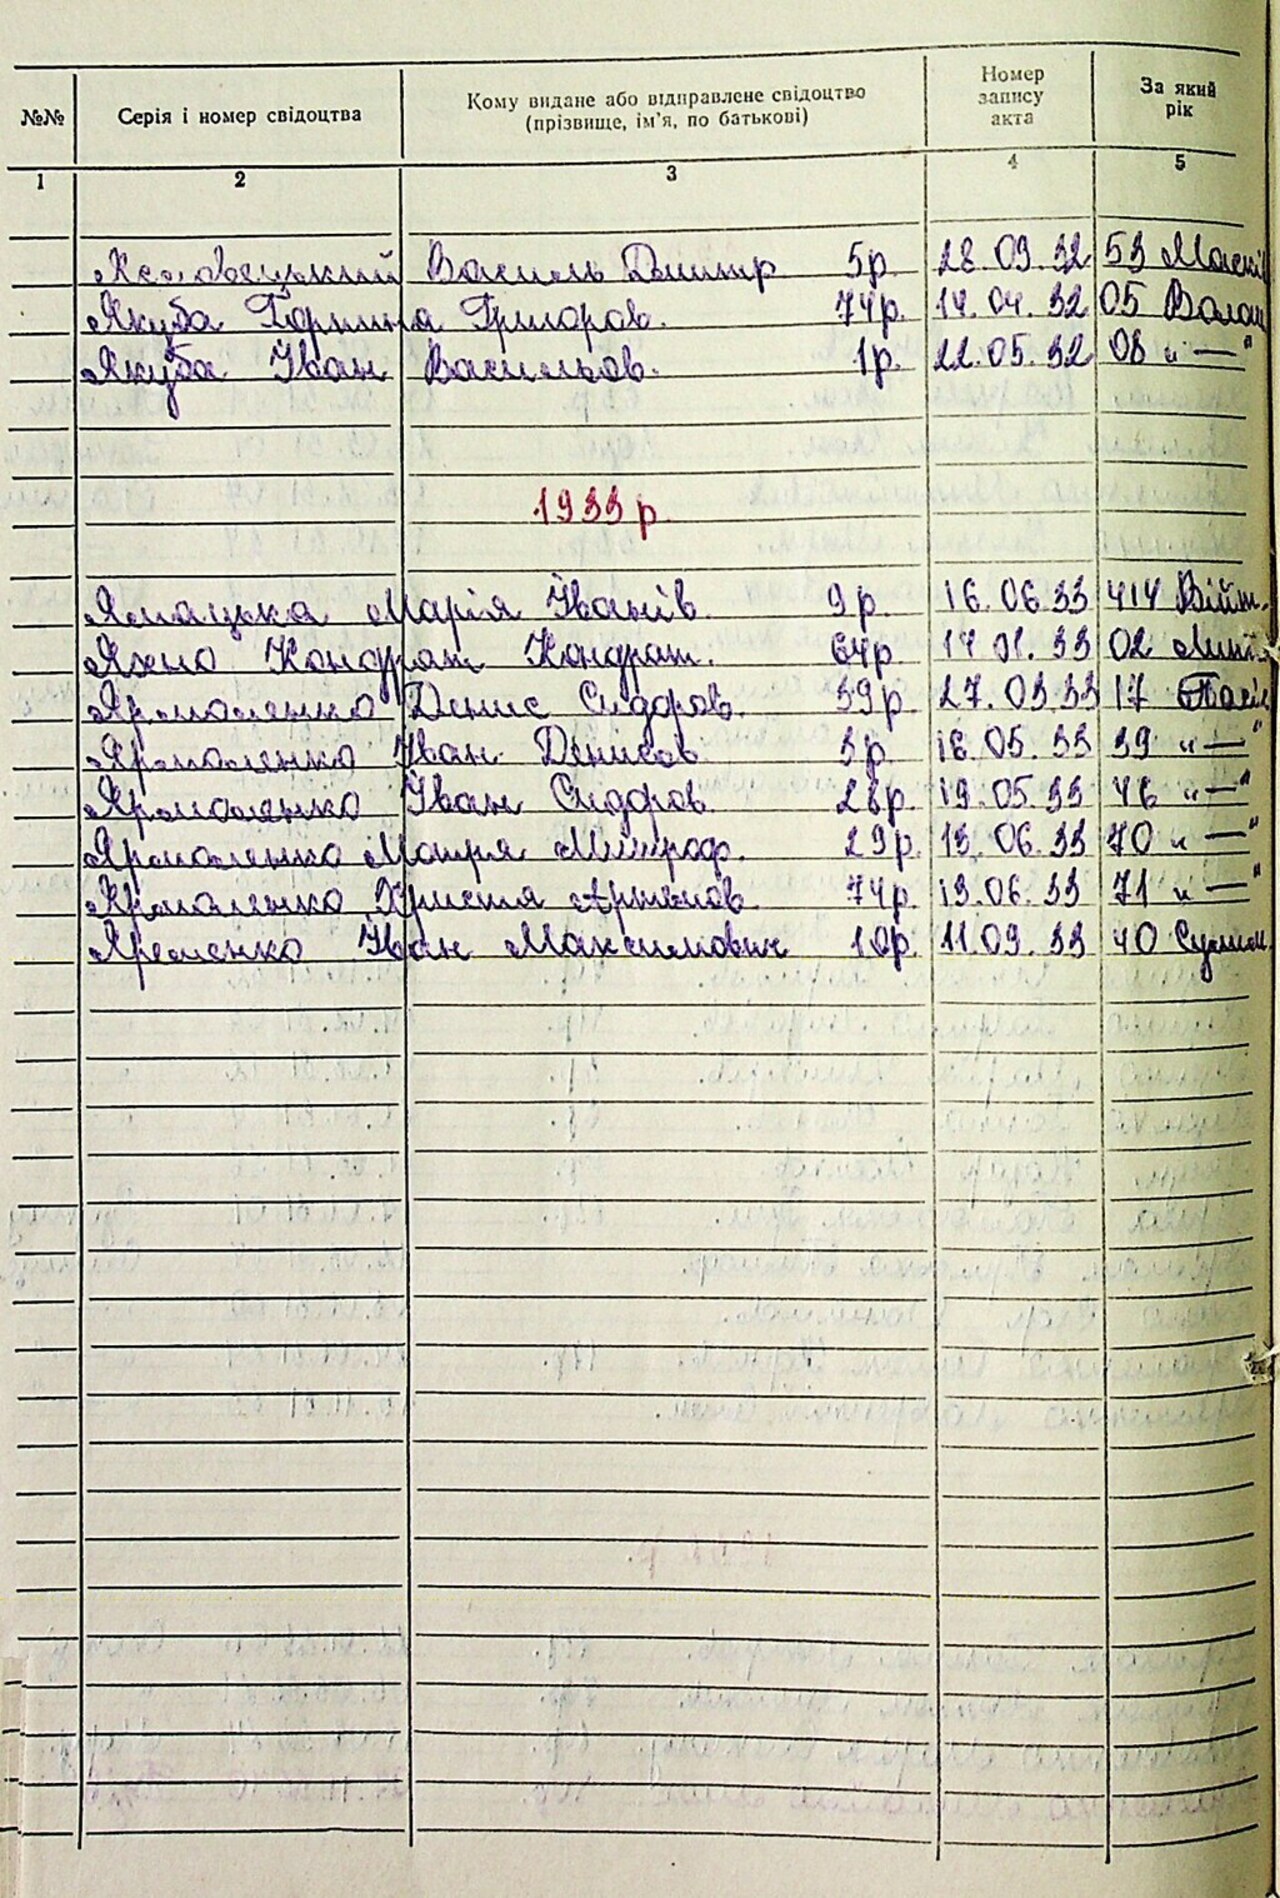 №№ Серія і номер свідоцтва Кому видане або відправлене свідоцтво (прізвище, ім'я, по батькові) Номер запису акта За який рік
1 2 3 4 5
Василь Дмитр 5р. 28.09.32 53
Якуба Горпина Григоров. 74р. 14.04.32 05 Волош
Якуба Іван Васильов. 1р. 22.05.32 08 "—"
1933р.
Марія Іванів. 9р. 16.06.33 414 Війт.
Яхно Кондрат Кондрат. 64р. 14.01.33 02
Ярмоленко Денис Сидоров. 39р. 27.03.33 17
Ярмоленко Іван Денисов 3р. 16.05.33 39 "—"
Ярмоленко Іван Сидоров. 28р. 19.05.33 46 "—"
Ярмоленко Мотря Митроф. 29р. 13.06.33 70 "—"
Ярмоленко Христя Артемов. 74р. 13.06.33 71 "—"
Яременко Іван Максимович 10р. 11.09.33 40